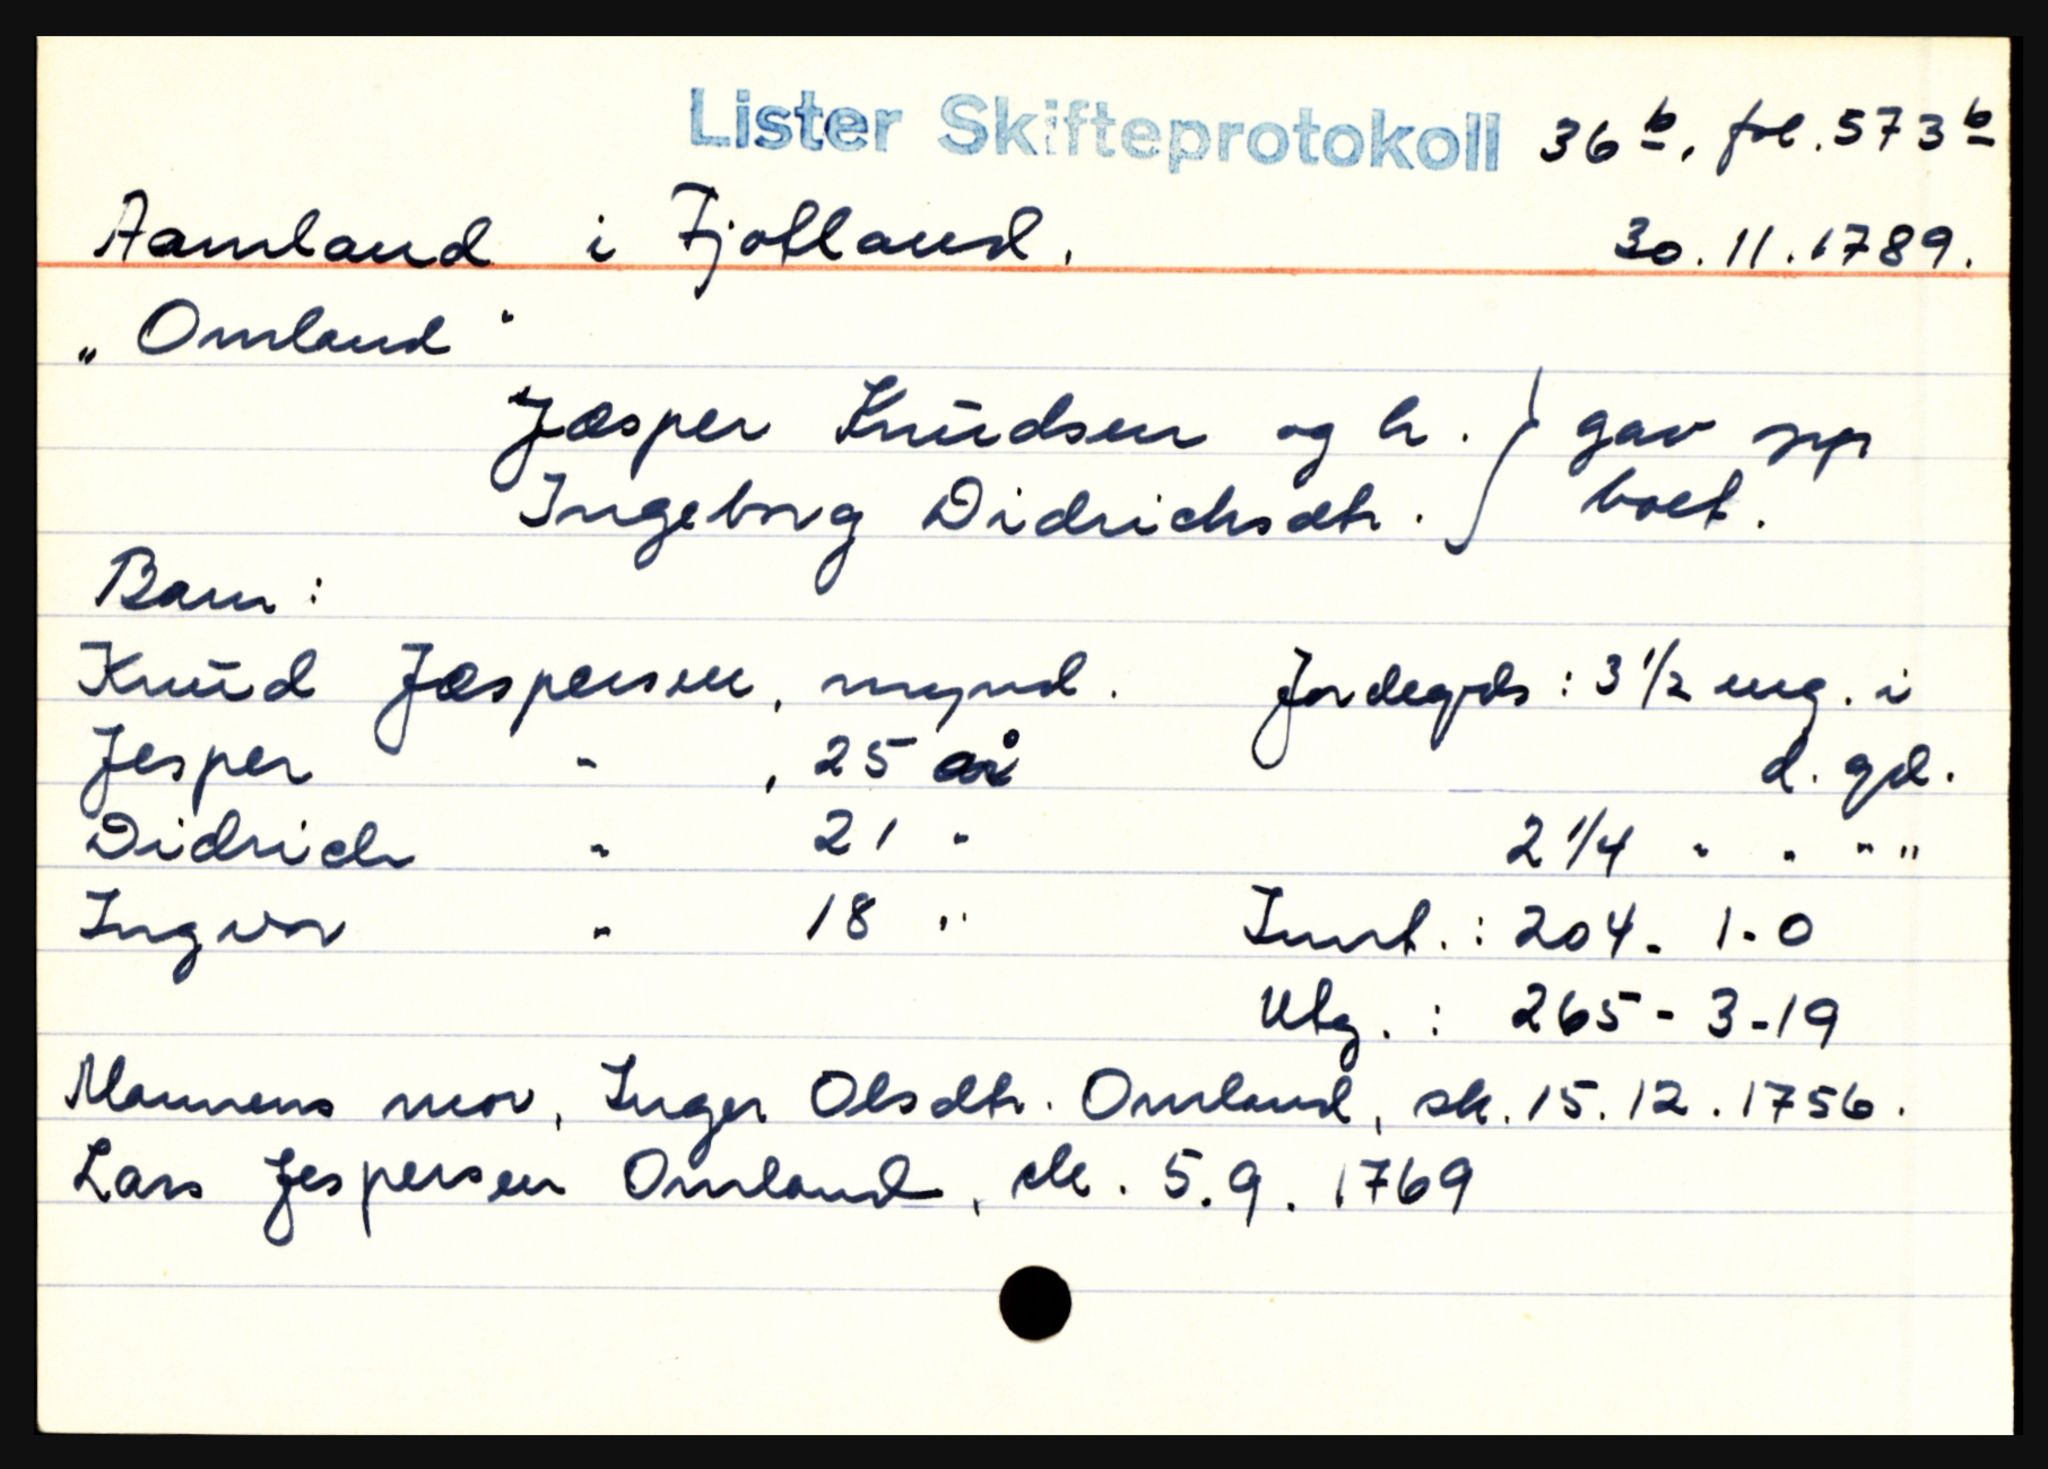 Lister Skifteprotokoll 36b. fol. 573b
Aamland i Fjotland. 30.11.1789.
„Omland"
Jæsper Knudsen og h. } gav opp
Ingeborg Didrichsdtr. } boet.
Barn:
Knud Jæspersen, mynd. Jordegods: 3 1/2 eng. i
Jesper " , 25 år d. gd.
Didrich " 21 " 2 1/4 " " " "
Ingvor " 18 " Innt.: 204 - 1 - 0
Utg.: 265 - 3 - 19
Mannens mor, Inger Olsdtr. Omland, sk. 15.12.1756.
Lars Jespersen Omland, sk. 5.9.1769